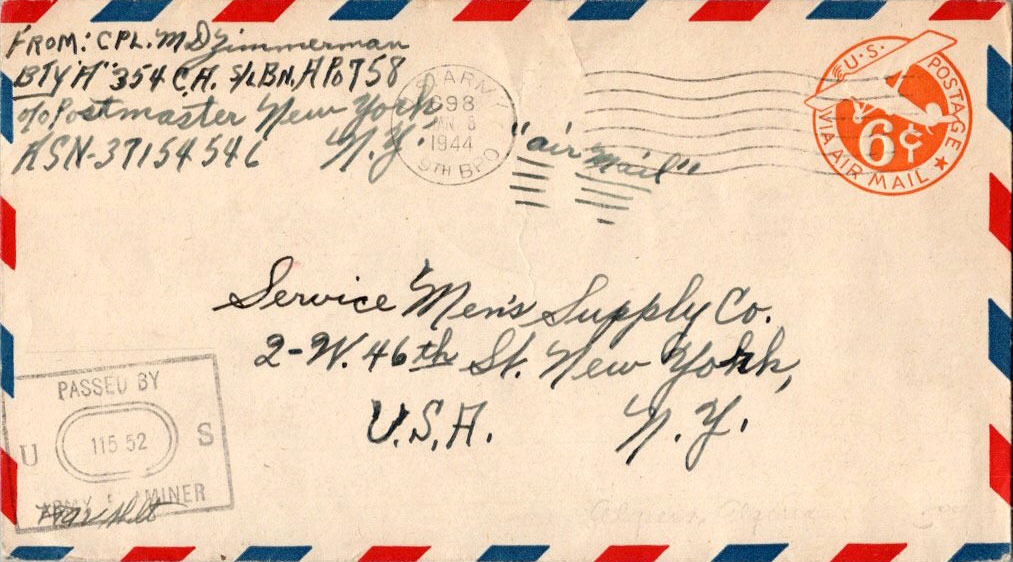 FROM: CPL. M D Zimmerman
BTY "A" 354 C.A. S/L BN. APO 758
c/o Postmaster New York
ASN-37154546 N.Y.
U.S. ARMY
698
1944
9TH BPO
"air mail"
U.S. POSTAGE
6¢
VIA AIR MAIL
Service Men's Supply Co.
2-W. 46th St. New York,
U.S.A. N.Y.
PASSED BY
U 115 52 S
ARMY EXAMINER